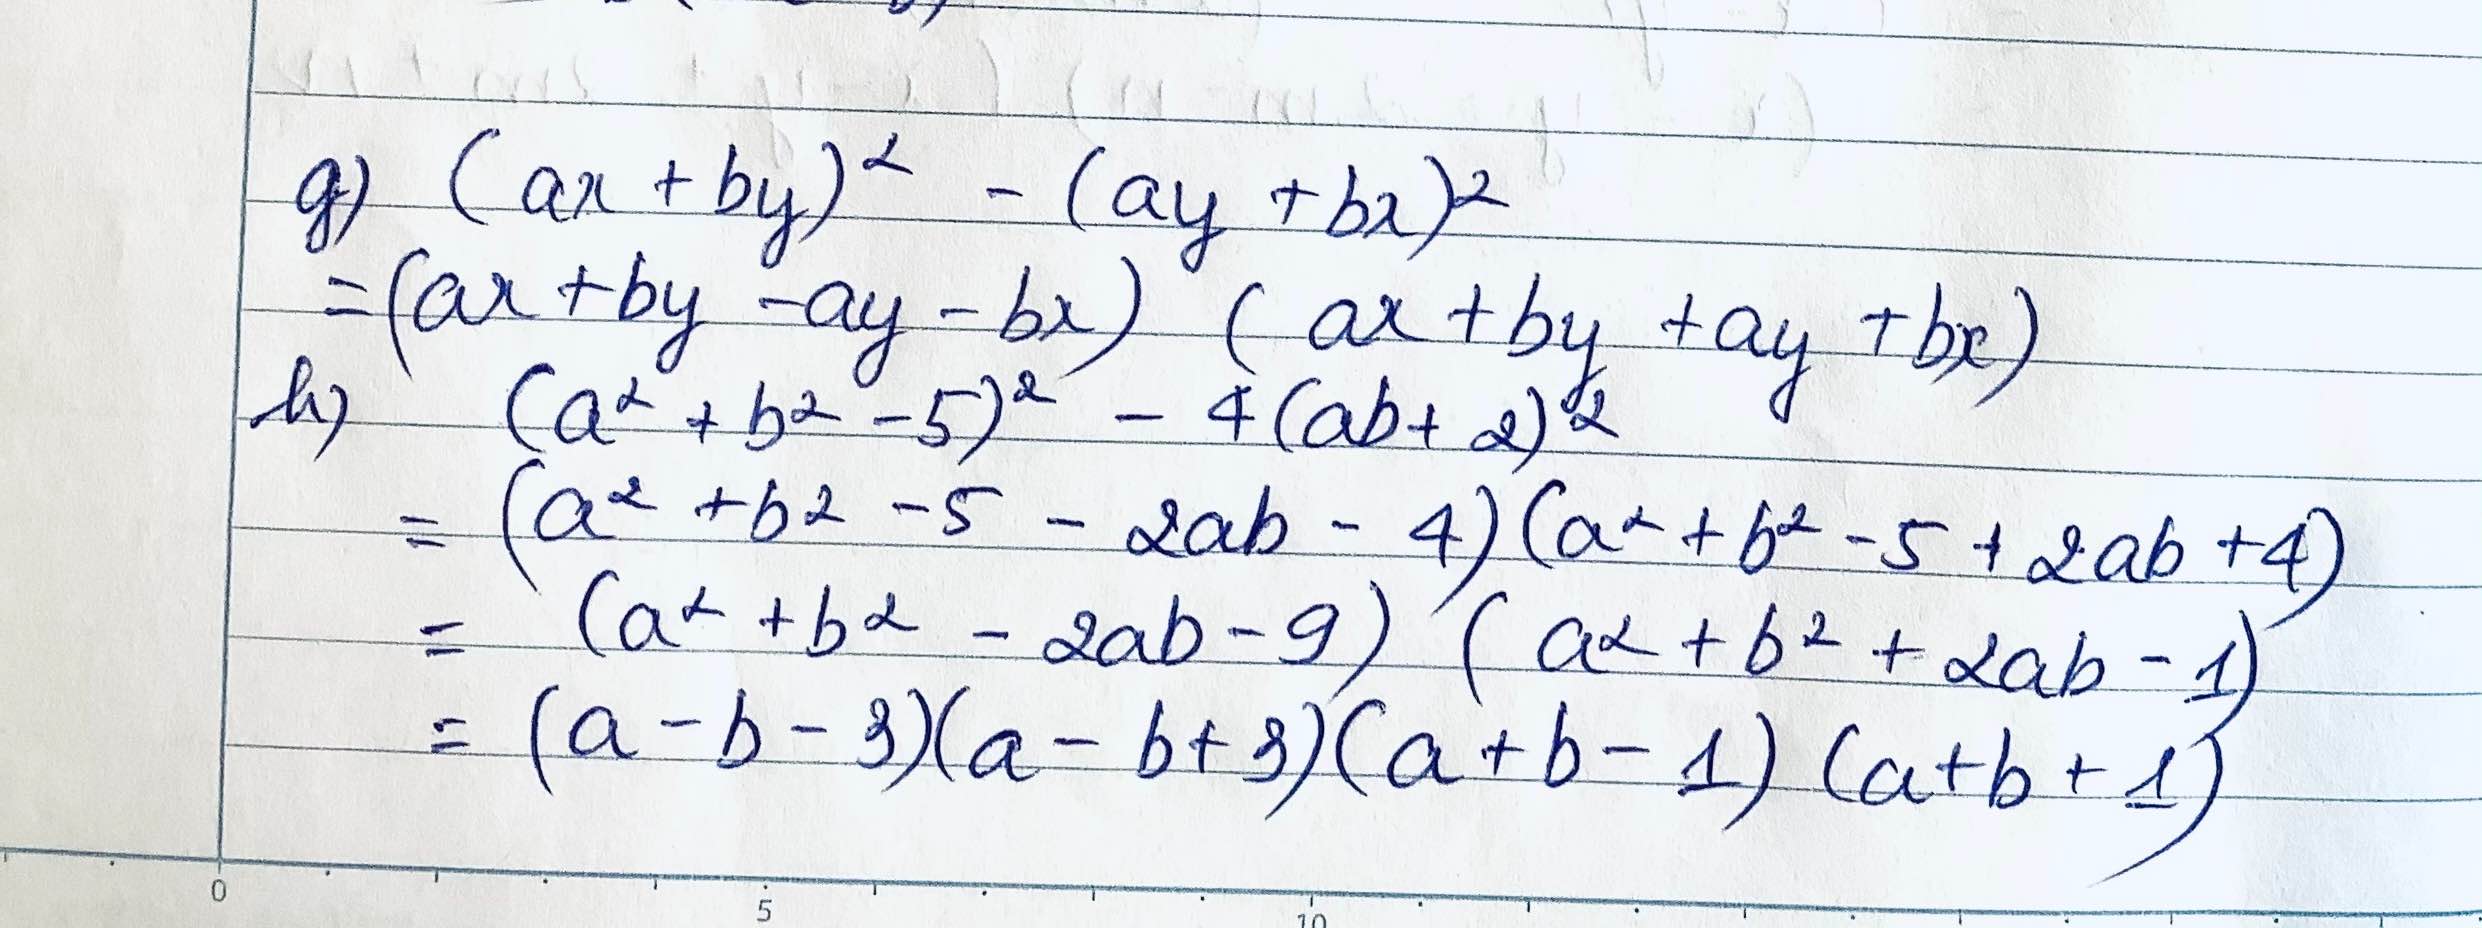 g) (ax + by)² - (ay + bx)²
= (ax + by - ay - bx) (ax + by + ay + bx)
h) (a² + b² - 5)² - 4(ab + 2)²
= (a² + b² - 5 - 2ab - 4)(a² + b² - 5 + 2ab + 4)
= (a² + b² - 2ab - 9) (a² + b² + 2ab - 1)
= (a - b - 3)(a - b + 3)(a + b - 1) (a + b + 1)
0 5 10